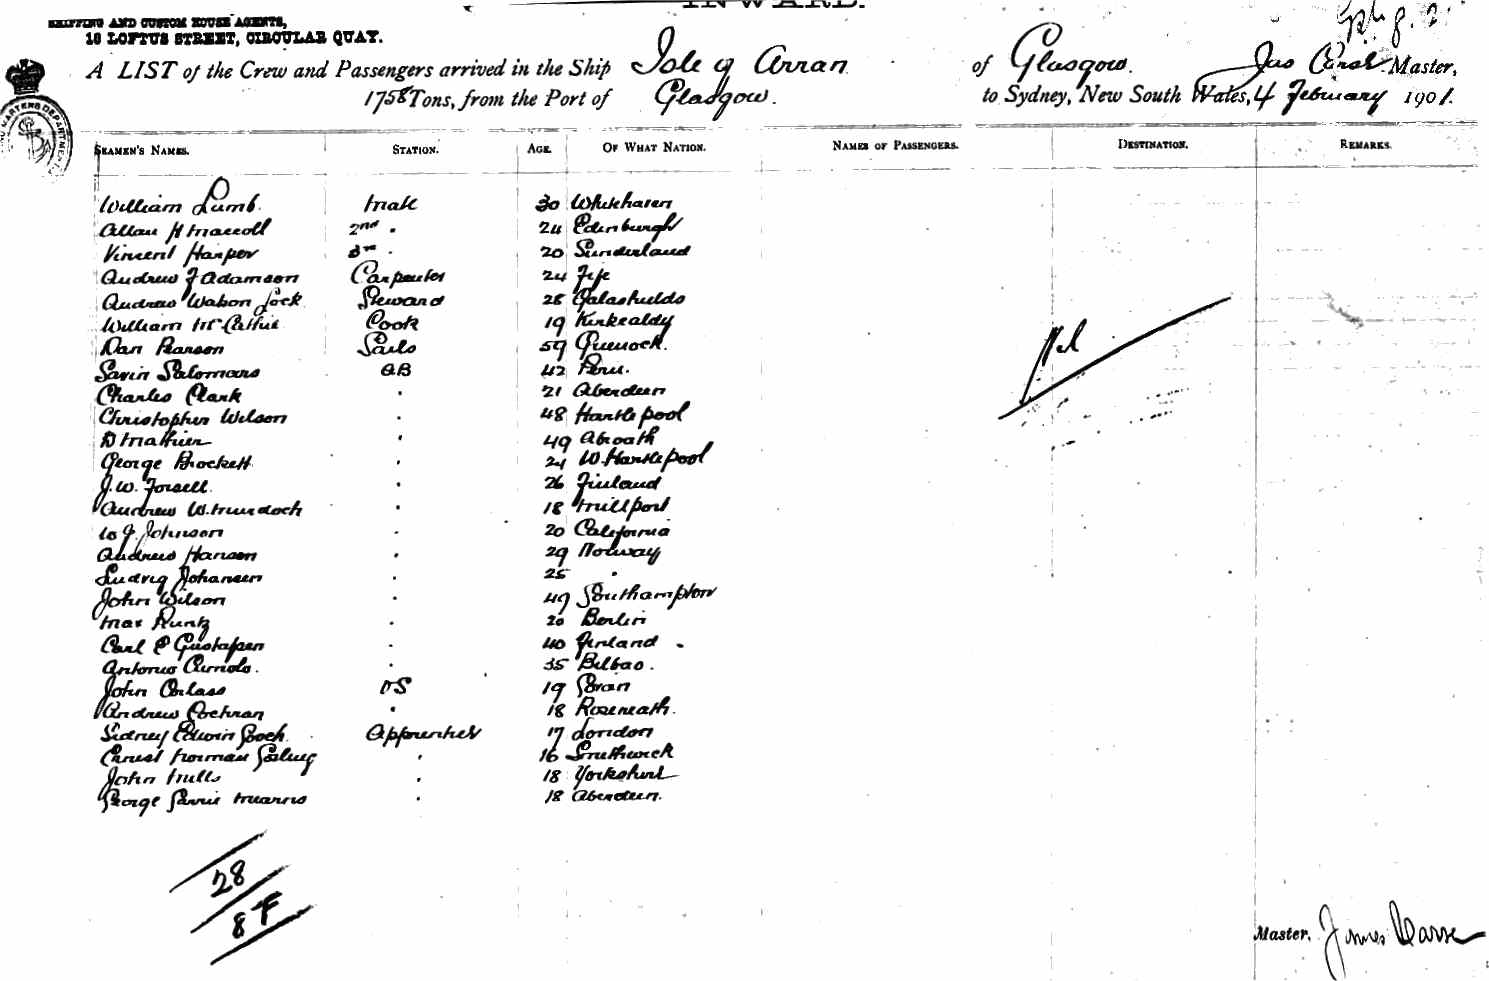 INWARD.
SHIPPING AND CUSTOM HOUSE AGENTS,
10 LOFTUS STREET, CIRCULAR QUAY.
A LIST of the Crew and Passengers arrived in the Ship Isle of Arran of Glasgow. Jas Master,
1758 Tons, from the Port of Glasgow. to Sydney, New South Wales, 4 February 1901.
SEAMEN'S NAMES. STATION. AGE. OF WHAT NATION. NAMES OF PASSENGERS. DESTINATION. REMARKS.
William Lumb. Mate 30 Whitehaven
Allan H 2nd . 24 Edinburgh
Vincent Harper 3rd . 20 Sunderland
Andrew J Adamson Carpenter 24 Fife
Andrew Watson Lock Steward 28 Galashields
William Cook 19 Kirkcaldy
Dan Pearson Sails 59 Greenock.
Savin Salomans AB 42 Peru.
Charles Clark . 21 Aberdeen
Christopher Wilson . 48 Hartlepool
D Mathier . 49 Abroath
George Brockett . 24 W. Hartlepool
J. W. Forsell. . 26 Finland
Andrew W. Murdoch . 18 Millport
W J. Johnson . 20 California
Andrew Hansen . 29 Norway
Ludvig Johansen . 25 .
John Wilson . 49 Southampton
Max Kuntz . 20 Berlin
Carl E Gustafsen . 40 Finland
Antonio . 35 Bilbao.
John Corlass OS 19
Andrew Cochran . 18 Roseneath.
Sidney Edwin Gooch. Apprentice 17 London
Ernest Norman . 16 Smethwick
John Mills . 18 Yorkshire
George Mearns . 18 Aberdeen.
Nil
28
8 F
Master, James